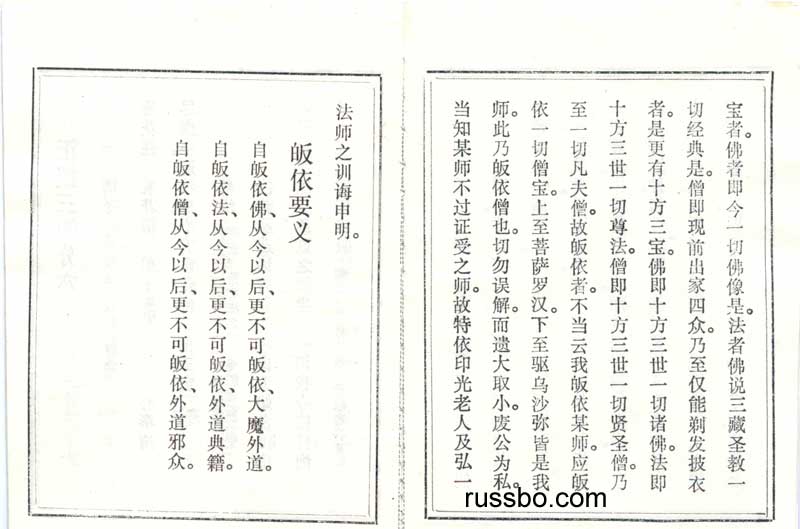 宝者。佛者即今一切佛像是。法者佛说三藏圣教一
切经典是。僧即现前出家四众。乃至仅能剃发披衣
者。是更有十方三宝。佛即十方三世一切诸佛。法即
十方三世一切尊法。僧即十方三世一切贤圣僧。乃
至一切凡夫僧。故皈依者。不当云我皈依某师。应皈
依一切僧宝。上至菩萨罗汉。下至驱乌沙弥皆是我
师。此乃皈依僧也。切勿误解。而遗大取小。废公为私。
当知某师不过证受之师。故特依印光老人及弘一
法师之训诲申明。
皈依要义
自皈依佛、从今以后、更不可皈依、大魔外道。
自皈依法、从今以后、更不可皈依、外道典籍。
自皈依僧、从今以后、更不可皈依、外道邪众。
russbo.com